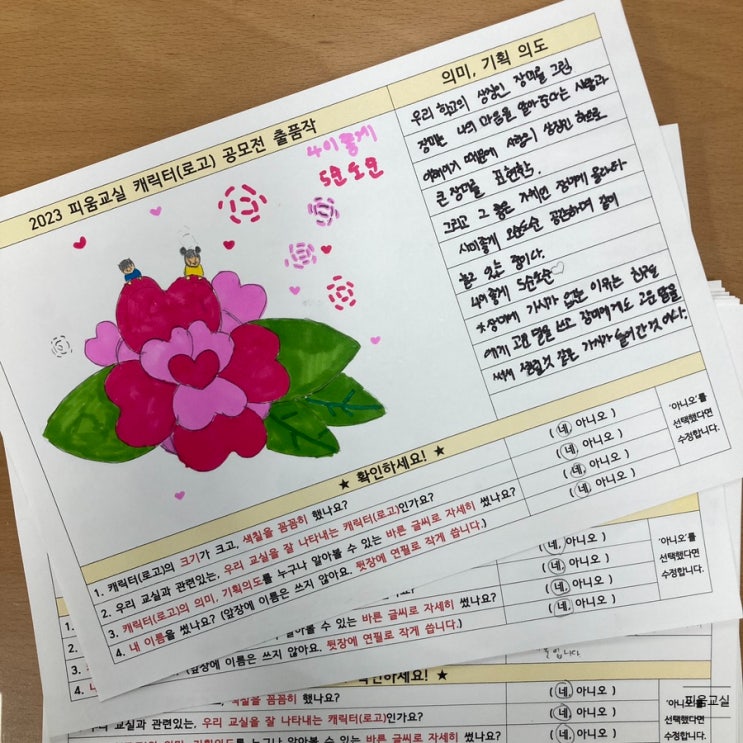 2023 피움교실 캐릭터(로고) 공모전 출품작
의미, 기획 의도
사이좋게
오순도순
우리 학교의 상징인 장미를 그린
장미는 나의 마음을 알아준다는 사람과
때문에 사랑의 상징인 하트로
큰 장미를 표현함.
그리고 그 좋은 장미에 올라타
사이좋게 오순도순 공존하며 같이
놀고 있는 중이다.
사이좋게 오순도순♡
장미에 가시가 없는 이유는 친구들
에게 고운 말을 쓰고 장미에게도 고운 말을
써서 가시가 들어간 것이다.
★ 확인하세요! ★
1. 캐릭터(로고)의 크기가 크고, 색칠을 꼼꼼히 했나요?
( 네, 아니오 )
2. 우리 교실과 관련있는, 우리 교실을 잘 나타내는 캐릭터(로고)인가요?
( 네, 아니오 )
3. 캐릭터(로고)의 의미, 기획의도를 누구나 알아볼 수 있는 바른 글씨로 자세히 썼나요?
( 네, 아니오 )
4. 내 이름을 썼나요? (앞장에 이름은 쓰지 않아요. 뒷장에 연필로 작게 씁니다.)
( 네, 아니오 )
'아니오'를
선택했다면
수정합니다.
1.
( 네, 아니오 )
2.
( 네, 아니오 )
3. 알아볼 수 있는 바른 글씨로 자세히 썼나요?
( 네, 아니오 )
4. (앞장에 이름은 쓰지 않아요. 뒷장에 연필로 작게 씁니다.)
( 네, 아니오 )
'아니오'를
선택했다면
수정합니다.
확인하세요! ★
색칠을 꼼꼼히 했나요?
( 네, 아니오 )
우리 교실과 관련있는, 우리 교실을 잘 나타내는 캐릭터(로고)인가요?
( 네, 아니오 )
기획의도를 누구나 알아볼 수 있는 바른 글씨로 자세히 썼나요?
( 네, 아니오 )
'아니오'를
선택했다면
수정합니다.
피움교실